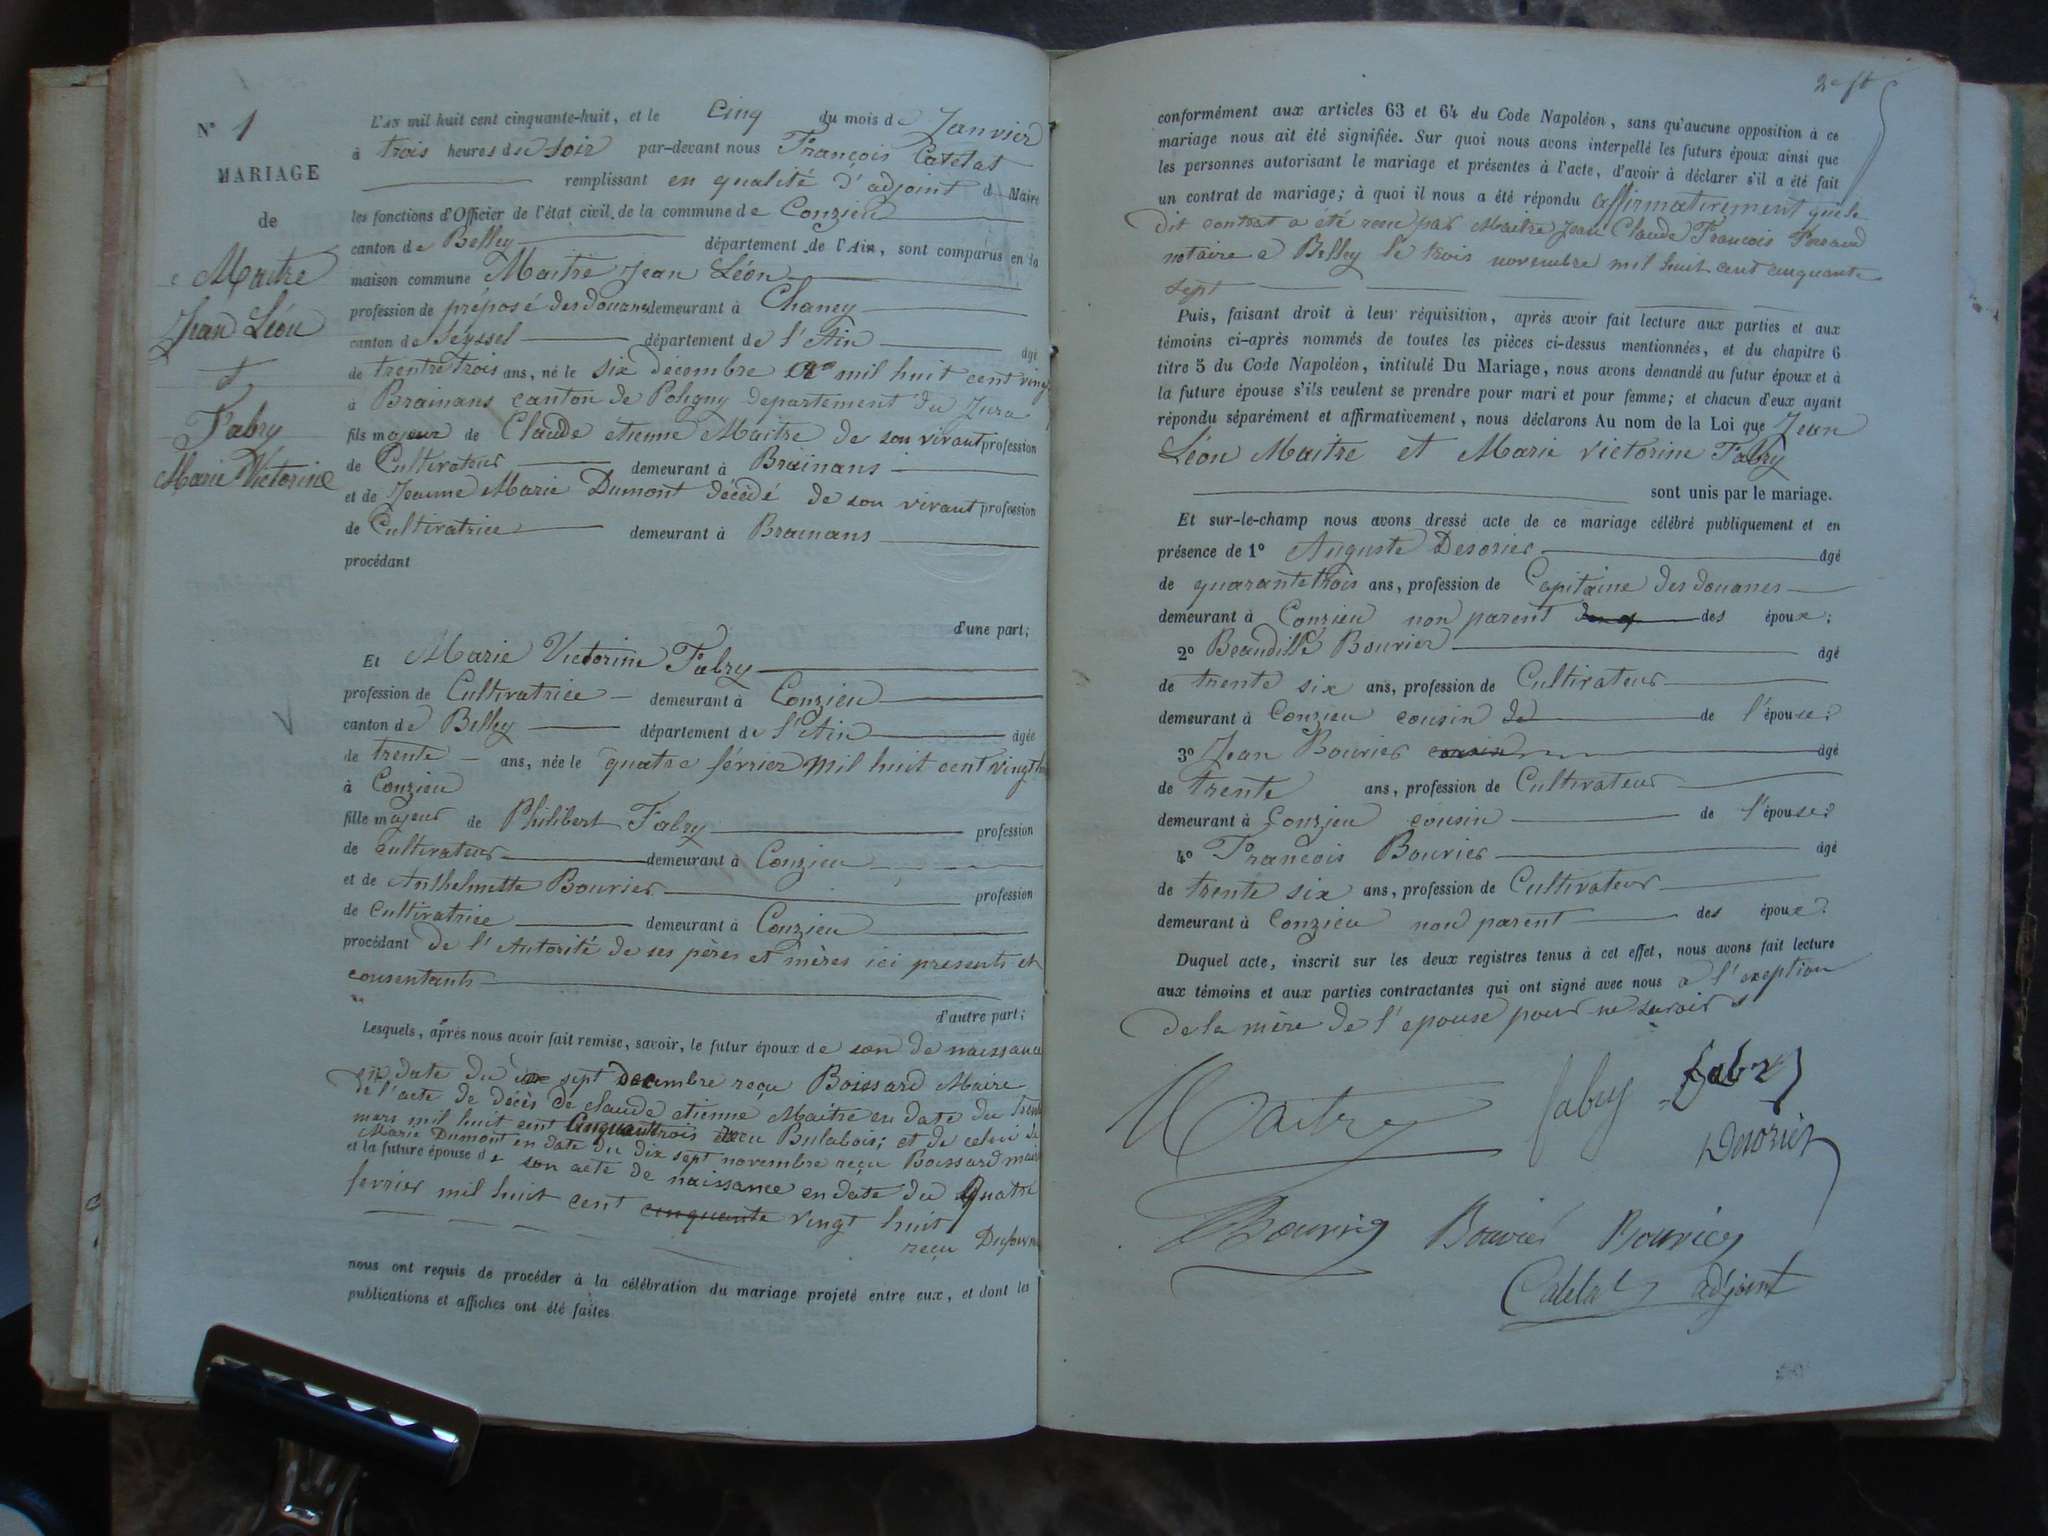 N° 1
MARIAGE
de
Maitre
Jean Léon
et
Fabry
Marie Victorine
L'AN mil huit cent cinquante-huit, et le Cinq du mois de Janvier
à trois heures du soir par-devant nous François Catelat
remplissant en qualité d'adjoint d Maire
les fonctions d'Officier de l'état civil de la commune de Conzieu
canton de Belley département de l'Ain, sont comparus en la
maison commune Maitre Jean Léon
profession de préposé des douanes demeurant à Chanay
canton de Seyssel département de l'Ain âgé
de trentre trois ans, né le six décembre mil huit cent vingt
à Brainans canton de Poligny département du Jura
fils majeur de Claude étienne Maitre de son vivant profession
de Cultivateur demeurant à Brainans
et de Jeanne Marie Dumont décédé de son vivant profession
de Cultivatrice demeurant à Brainans
procédant
d'une part;
Et Marie Victorine Fabry
profession de Cultivatrice demeurant à Conzieu
canton de Belley département de l'Ain âgée
de trente ans, née le quatre février mil huit cent vingt
à Conzieu
fille majeur de Philibert Fabry profession
de cultivateur demeurant à Conzieu
et de Anthelmette Bouvier profession
de cultivatrice demeurant à Conzieu
procédant de l'Autorité de ses pères et mères ici présents et
consentants
d'autre part;
Lesquels, après nous avoir fait remise, savoir, le futur époux de son de naissance
en date du sept Decembre reçu Boissard Maire
de l'acte de décès de claude etienne Maitre en date du trente
mars mil huit cent Cinquantrois reçu Bulabois; et de celui de
Marie Dumont en date du dix sept novembre reçu Boissard maire
et la future épouse de son acte de naissance en date du Quatre
fevrier mil huit cent cinquante vingt huit
reçu
nous ont requis de procéder à la célébration du mariage projeté entre eux, et dont les
publications et affiches ont été faites
2e ft
conformément aux articles 63 et 64 du Code Napoléon, sans qu'aucune opposition à ce
mariage nous ait été signifiée. Sur quoi nous avons interpellé les futurs époux ainsi que
les personnes autorisant le mariage et présentes à l'acte, d'avoir à déclarer s'il a été fait
un contrat de mariage; à quoi il nous a été répondu affirmativement que le
dit contrat a été reçu par Maitre Jean Claude François
notaire a Belley le trois novembre mil huit cent cinquante
sept
Puis, faisant droit à leur réquisition, après avoir fait lecture aux parties et aux
témoins ci-après nommés de toutes les pièces ci-dessus mentionnées, et du chapitre 6
titre 5 du Code Napoléon, intitulé Du Mariage, nous avons demandé au futur époux et à
la future épouse s'ils veulent se prendre pour mari et pour femme; et chacun d'eux ayant
répondu séparément et affirmativement, nous déclarons Au nom de la Loi que Jean
Léon Maitre et Marie victorine Fabry
sont unis par le mariage.
Et sur-le-champ nous avons dressé acte de ce mariage célébré publiquement et en
présence de 1° Auguste Desorier âgé
de quarante trois ans, profession de Capitaine des douanes
demeurant à Conzieu non parent des époux;
2° Beaudille Bouvier âgé
de trente six ans, profession de Cultivateur
demeurant à Conzieu cousin de de l'épouse;
3° Jean Bouvier cousin âgé
de trente ans, profession de Cultivateur
demeurant à Conzieu cousin de l'épouse;
4° François Bouvier âgé
de trente six ans, profession de Cultivateur
demeurant à Conzieu non parent des époux.
Duquel acte, inscrit sur les deux registres tenus à cet effet, nous avons fait lecture
aux témoins et aux parties contractantes qui ont signé avec nous a l'exeption
de la mère de l'epouse pour ne savoir
Maitre fabry fabry
Desorier
Bouvier Bouvier Bouvier
Catelat adjoint